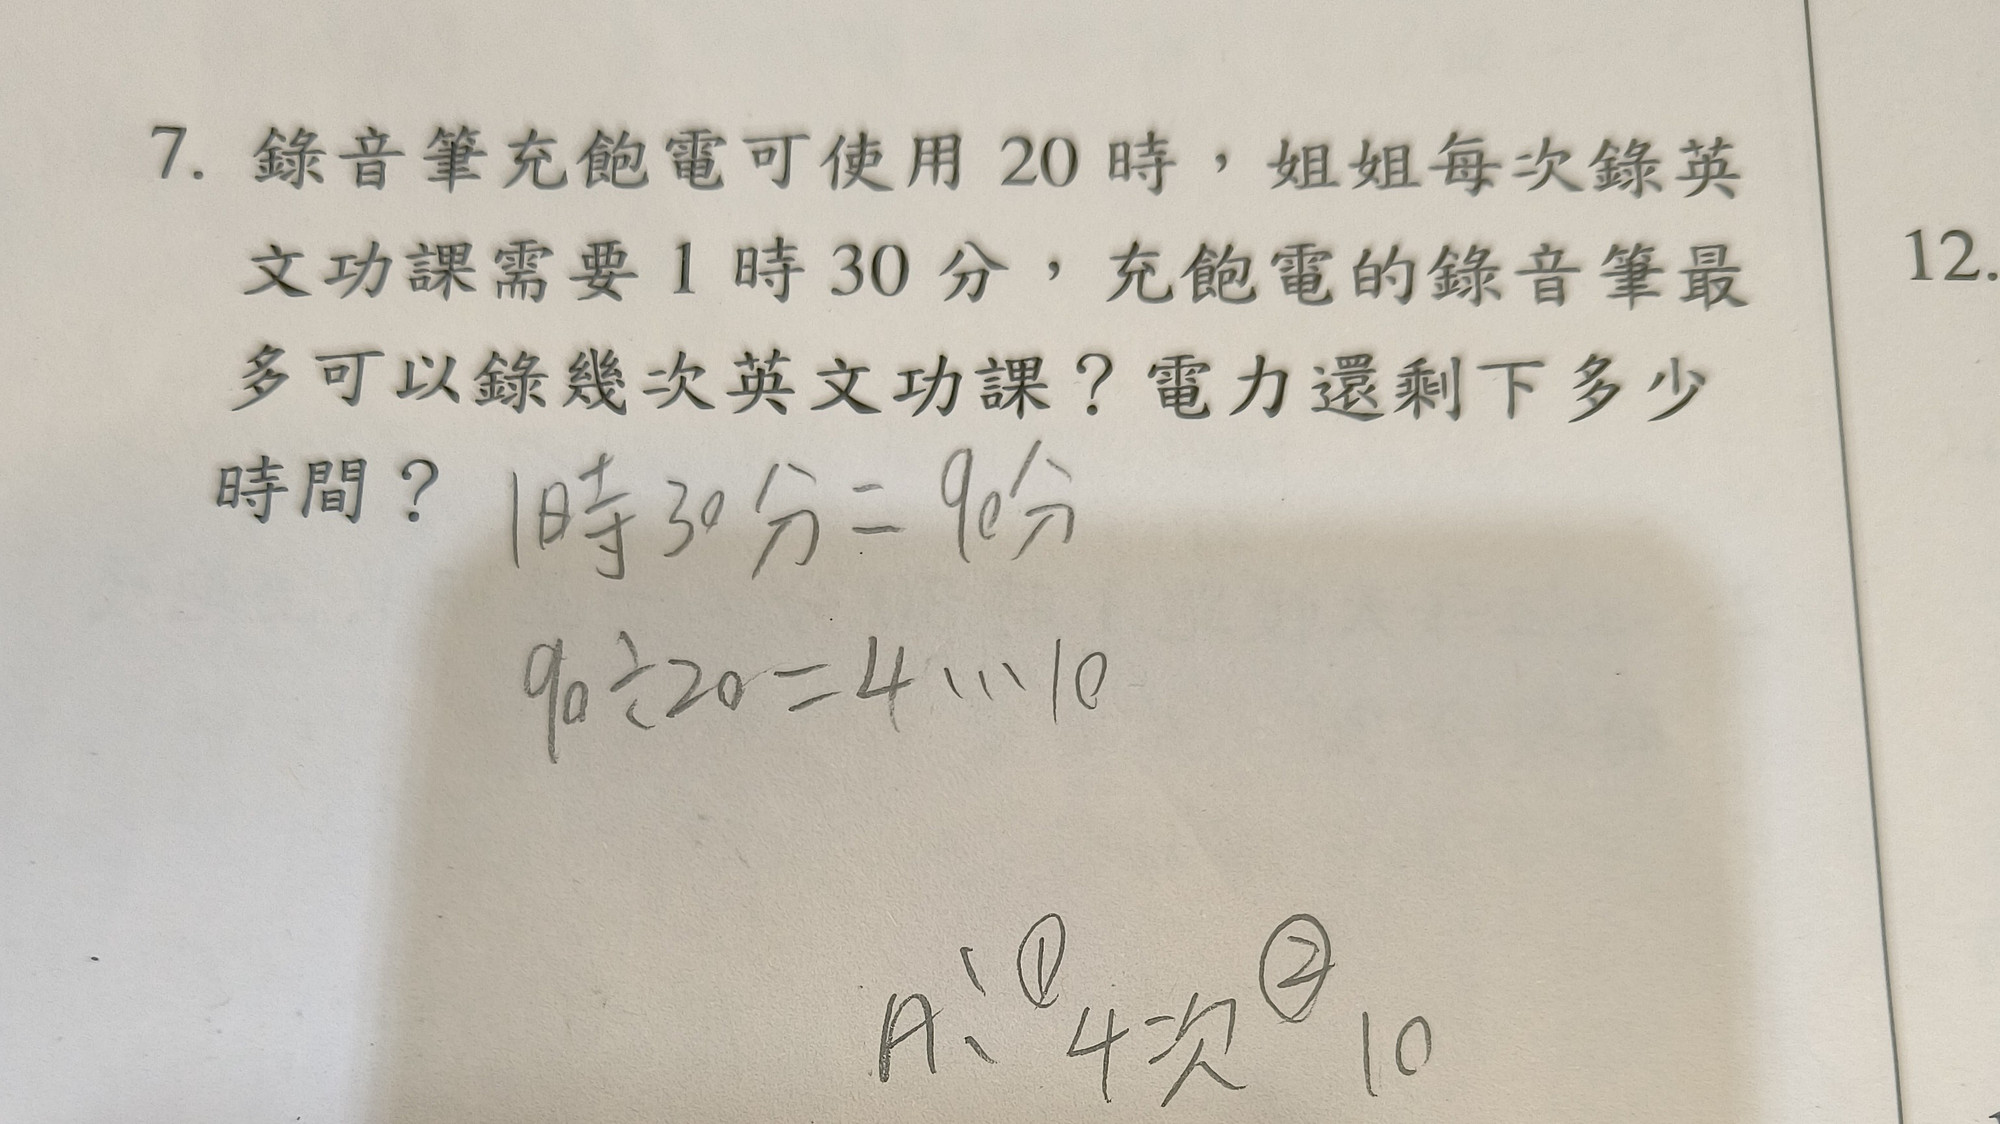 7. 錄音筆充飽電可使用 20 時，姐姐每次錄英
文功課需要 1 時 30 分，充飽電的錄音筆最
多可以錄幾次英文功課？電力還剩下多少
時間？
1時30分=90分
90÷20=4…10
A:①4次②10
12.